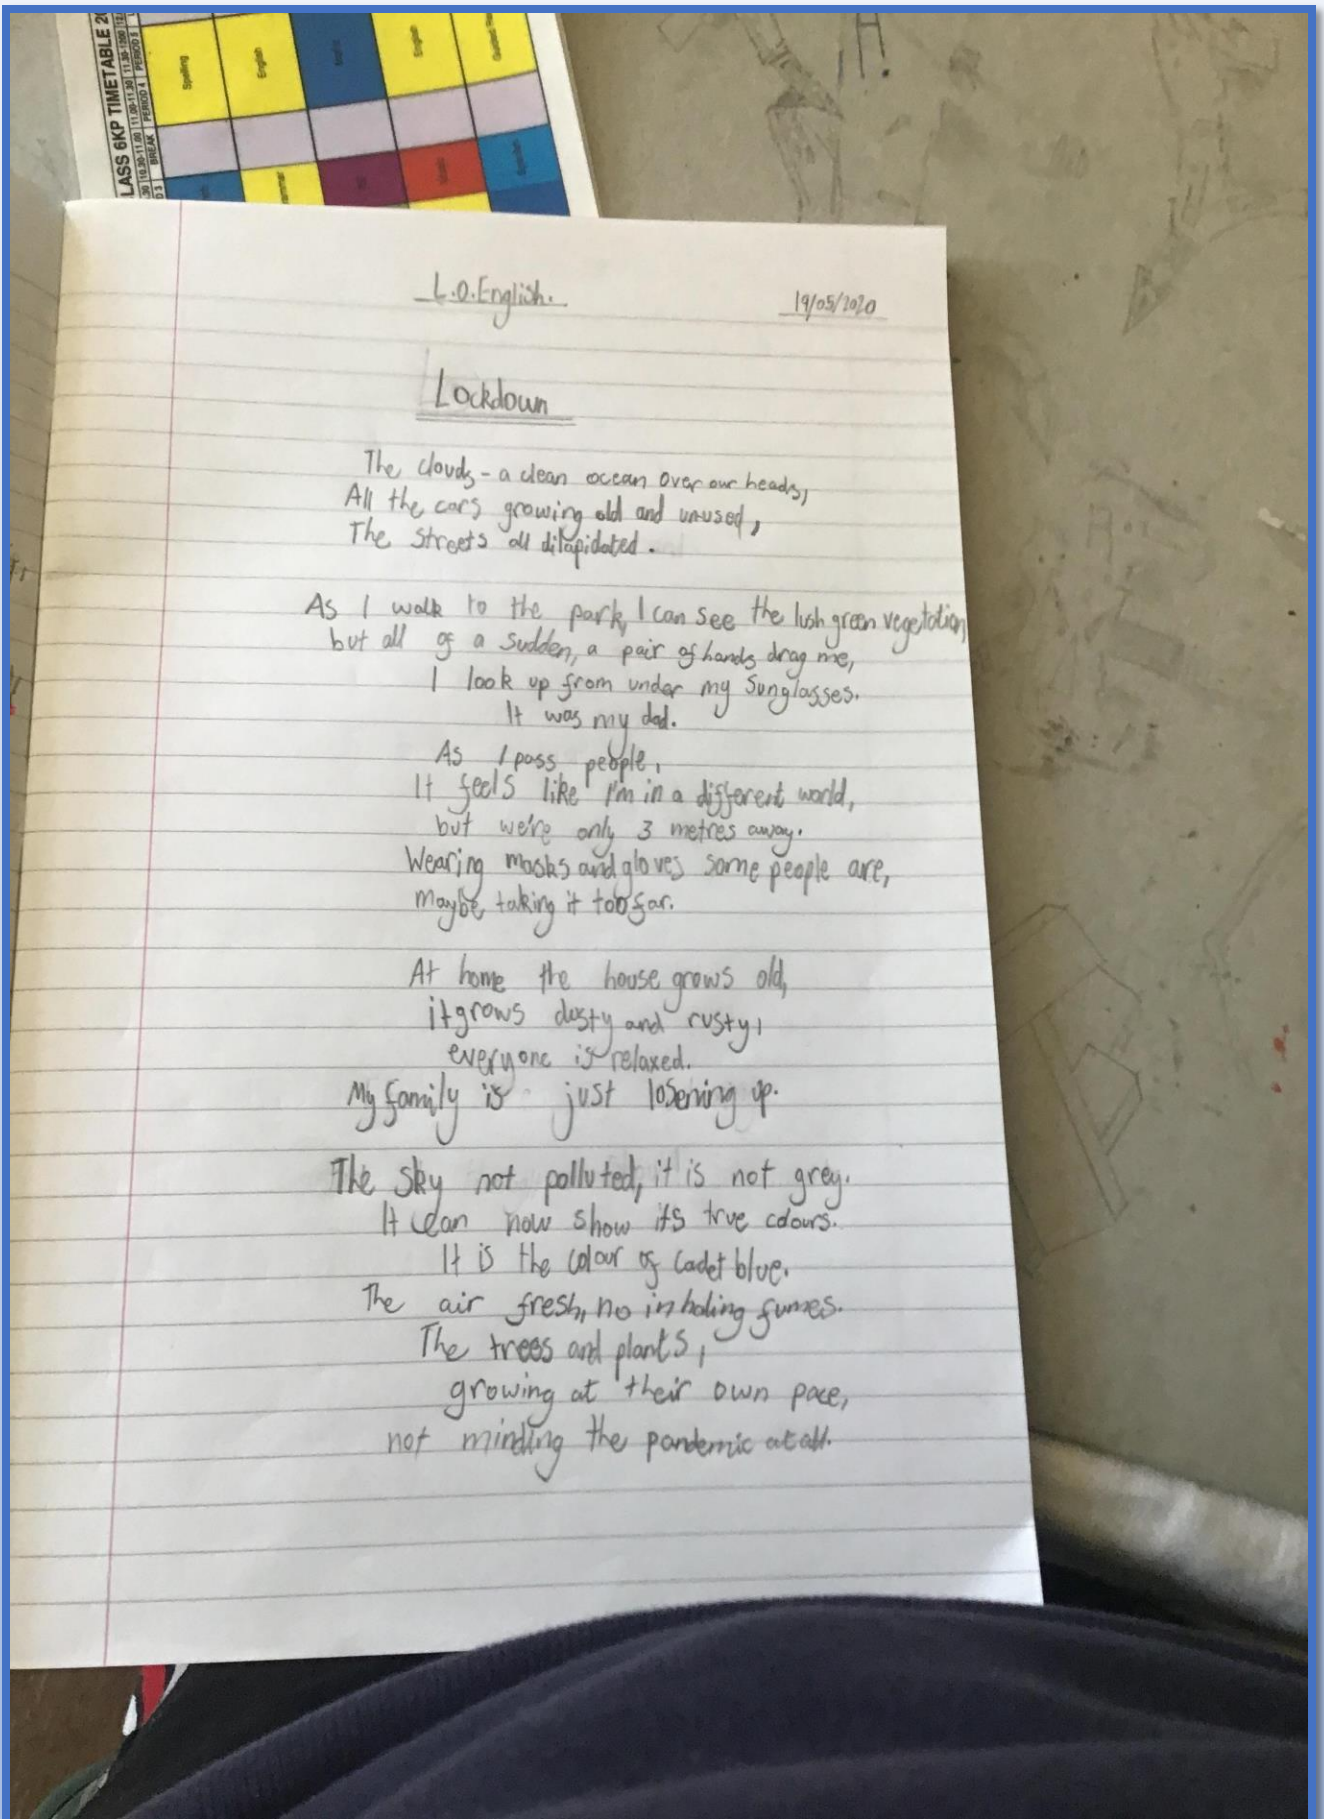 LASS 6KP TIMETABLE 20
10.30-11.00
11.00-11.30
11.30-1200
BREAK
PERIOD 4
PERIOD 5
Spelling
English
Maths
English
L.O.English.
19/05/2020
Lockdown
The clouds - a clean ocean over our heads,
All the cars growing old and unused,
The streets all dilapidated.
As I walk to the park, I can see the lush green vegetation,
but all of a sudden, a pair of hands drag me,
I look up from under my sunglasses.
It was my dad.
As I pass people,
It feels like I'm in a different world,
but we're only 3 metres away.
Wearing masks and gloves some people are,
maybe taking it too far.
At home the house grows old,
it grows dusty and rusty,
everyone is relaxed.
My family is just losening up.
The sky not polluted, it is not grey.
It can now show its true colours.
It is the colour of cadet blue.
The air fresh, no inhaling fumes.
The trees and plants,
growing at their own pace,
not minding the pandemic at all.